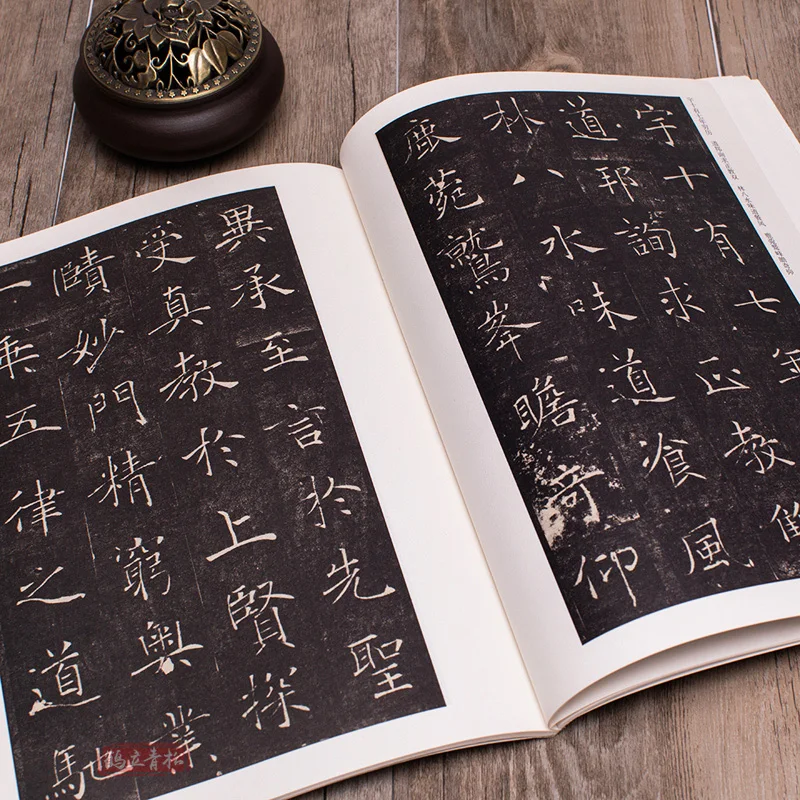 宇十有七年
道邦詢求正教
林八水味道飡風
鹿菀鷲峯瞻奇仰
異承至言於先聖
受真教於上賢探
賾妙門精窮奧業
一乘五律之道馳
鹤立青松